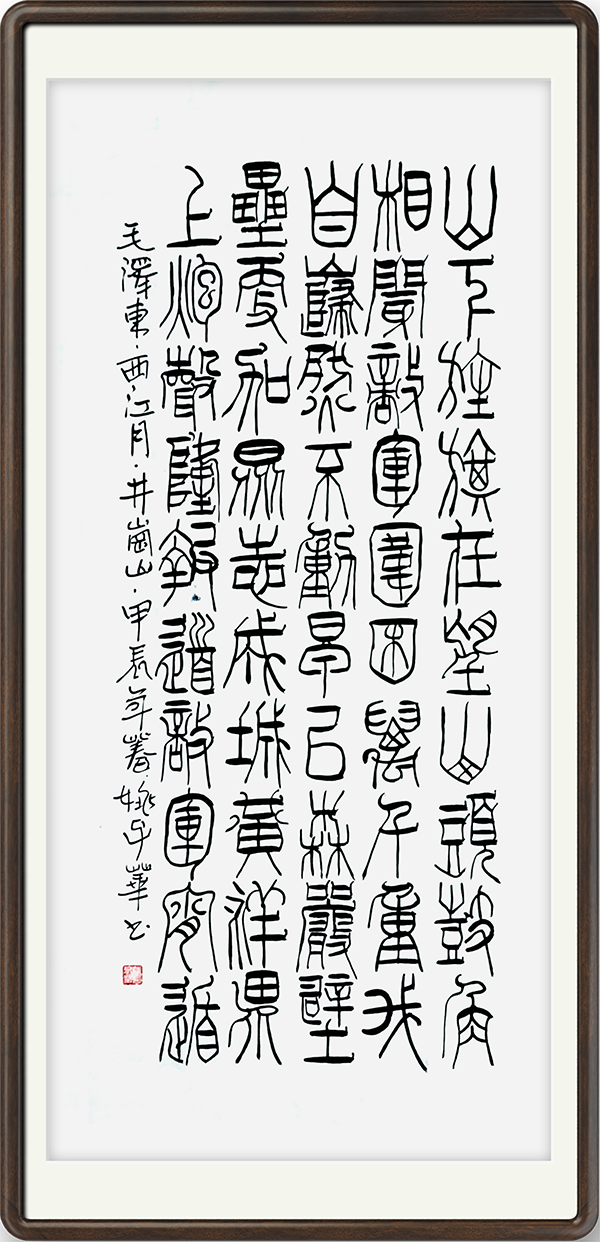 山下旌旗在望山頭鼓角
相聞敵軍圍困萬千重我
自巋然不動早已森嚴壁
壘更加眾志成城黃洋界
上炮聲隆報道敵軍宵遁
毛澤東·西江月·井崗山·甲辰年萅·姚華书